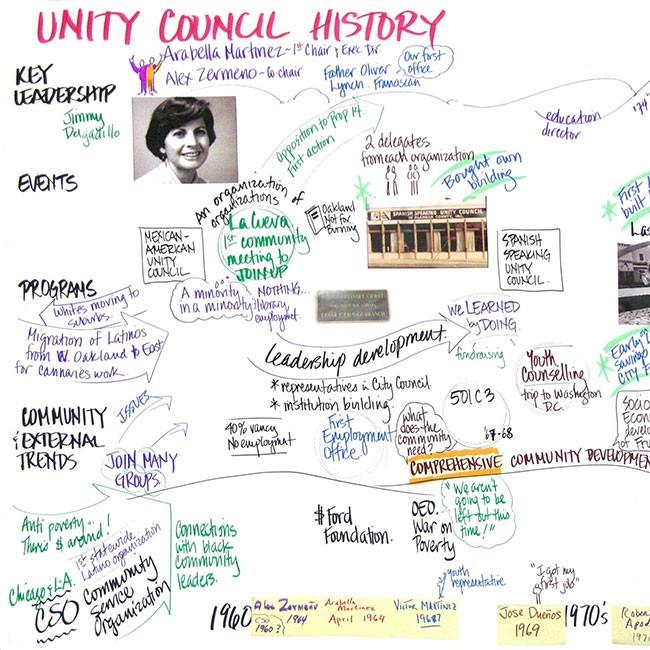 UNITY COUNCIL HISTORY
KEY
LEADERSHIP
Arabella Martinez - 1st Chair & Exec Dir.
Alex Zermeno - Co-chair
Father Oliver
Lynch - Franciscan
Our first
office
Jimmy
Delgadillo
Opposition to Prop 14
First action
education
director
'74
EVENTS
2 delegates
from each organization
Bought own
building
An organization of
organizations
La Cueva
1st community
meeting to
JOIN UP
Oakland
Not for
Burning
SPANISH SPEAKING UNITY COUNCIL
MEXICAN-
AMERICAN
UNITY
COUNCIL
SPANISH
SPEAKING
UNITY
COUNCIL
First
built
Las
PROGRAMS
A minority
in a minority
NOTHING...
library,
employmet.
Whites moving to
suburbs.
Migration of Latinos
from W. Oakland to East
for canneries work.
we LEARNED
by DOING.
Leadership development.
* representatives in City Council
* institution building
fundraising
501C3
67-68
Youth
Counselling
trip to Washington
D.C.
Early
savings
CITY
COMMUNITY
& EXTERNAL
TRENDS
ISSUES
JOIN MANY
GROUPS
40% vancy
No employmnt
First
Employment
Office
what
does the
community
need?
COMPREHENSIVE COMMUNITY DEVELOPMEN
Socio
Econ
develo
not Fru
Anti poverty...
There's $ around!
1st statewide
Latino organization
Chicago & L.A.
CSO Community
Service
Organization
Connections
with black
community
leaders.
$ Ford
Foundation.
OEO.
War on
Poverty
"We aren't
going to be
left out this
time!"
youth
representative
"I got my
first job"
1960
Alex Zermeño
CSO
1960?
1964
Arabella
Martinez
April 1964
Victor Martinez
Jose Dueños
1969
1970's
Rober
Apod